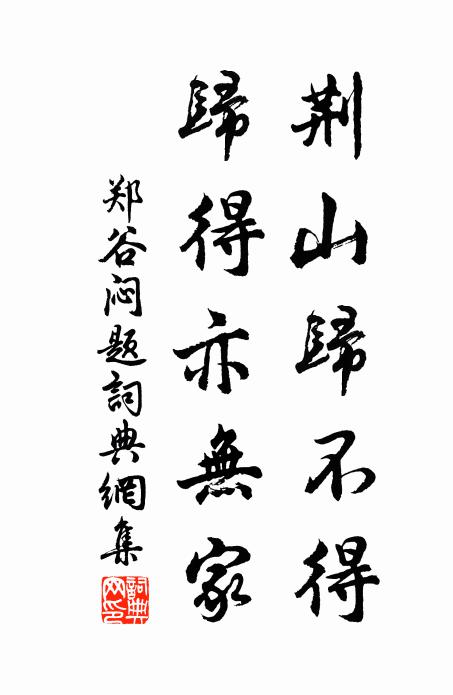 荆山歸不得
歸得亦無家
郑谷闷题詞典網集
詞典网印